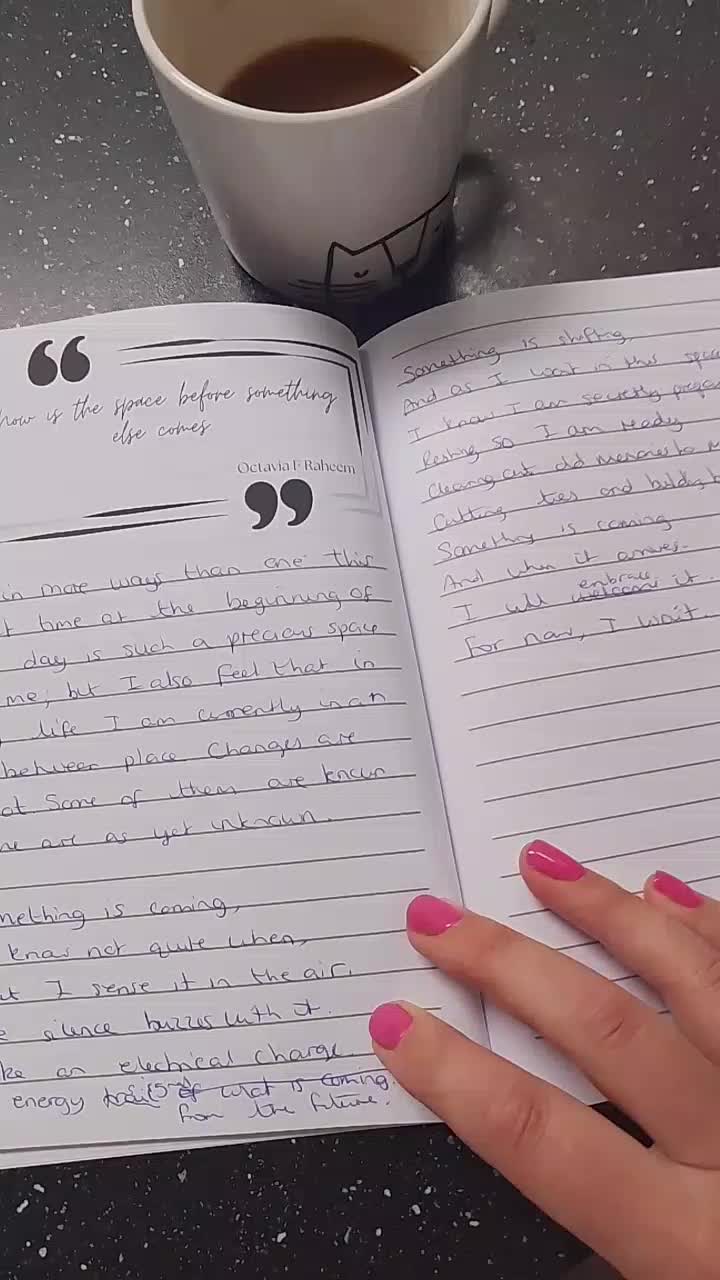 how is the space before something
else comes
Octavia F Raheem
in more ways than one this
time at the beginning of
day is such a precious space
me, but I also feel that in
life I am currently in an
between place Changes are
Some of them are known
are as yet unknown.
something is coming,
know not quite when,
I sense it in the air.
silence buzzes with it.
an electrical charge.
energy of what is coming.
from the future.
Something is shifting,
And as I wait in this space
I know I am secretly
Resting so I am ready
Clearing out old memories to
Cutting ties and
Something is coming
And when it arrives.
embrace
I will welcome it.
For now, I wait